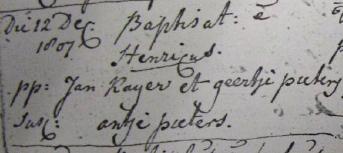 Die 12 Dec. Baptisat: ē
1807. Henricus.
pp: Jan Kayer et geertje pieters
Susc: antje pieters.